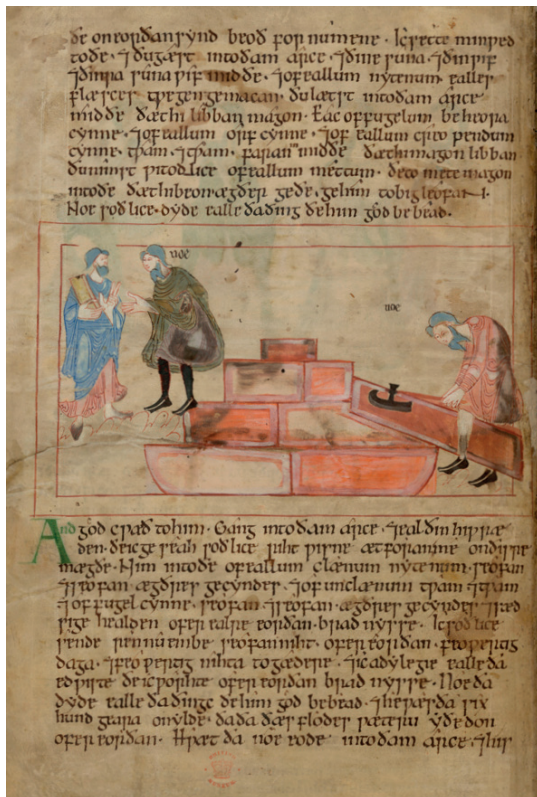 ðe on eorðan synd beoð fornumene. Ic sette min wed
to ðe. ⁊ ðu gæst into ðam arce. ⁊ ðine suna. ⁊ ðin wif
⁊ ðinra suna wif mid ðe. ⁊ of eallum nytenum ealles
flæsces twegen gemacan. ðu lætst into ðam arce
mid ðe ðæt hi libban magon. Eac of fugelum be heora
cynne. ⁊ of eallum orfcynne. ⁊ of eallum creopendum
cynne. twam ⁊ twam. faran in mid ðe ðæt hi magon libban
ðu nimst witodlice of eallum mettum. ðe to mete magon
into ðe ðæt hi beon ægðer ge ðe. ge him to bigleofan
Noe soðlice dyde ealle ða ðing ðe him god bebead.
noe
noe
And god cwæð to him. Gang into ðam arce. ⁊ eal ðin hiwræ
den. ðe ic geseah soðlice rihtwisne ætforan me on ðissere
mægðe. Nim into ðe of eallum clænum nytenum. seofan
⁊ seofan ægðres gecyndes. ⁊ of unclænum twam ⁊ twam
⁊ of fugelcynne. seofan ⁊ seofan. ægðres gecyndes. ⁊ sæd
sige healden ofer ealre eorðan bradnysse. Ic soðlice
sende ren nu embe seofan niht. ofer eorðan. feowertig
daga. ⁊ feowertig nihta togædere. ⁊ ic adylegie ealle ða
edwiste ðe ic worhte ofer eorðan bradnysse. Noe ða
dyde ealle ða ðinge ðe him god bebead. ⁊ he wæs ða six
hund geara on ylde. ða ða ðæs flodes wæteru yðedon
ofer eorðan. Hwæt ða noe eode into ðam arce. ⁊ his